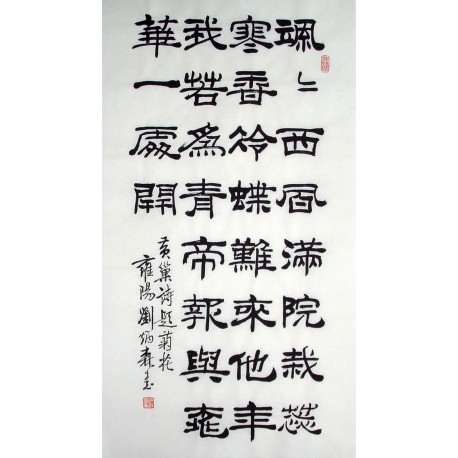 颯〻西風滿院栽蕊
寒香冷蝶難來他年
我若為青帝報與桃
華一處開
黃巢诗題菊花
雍陽劉炳森書